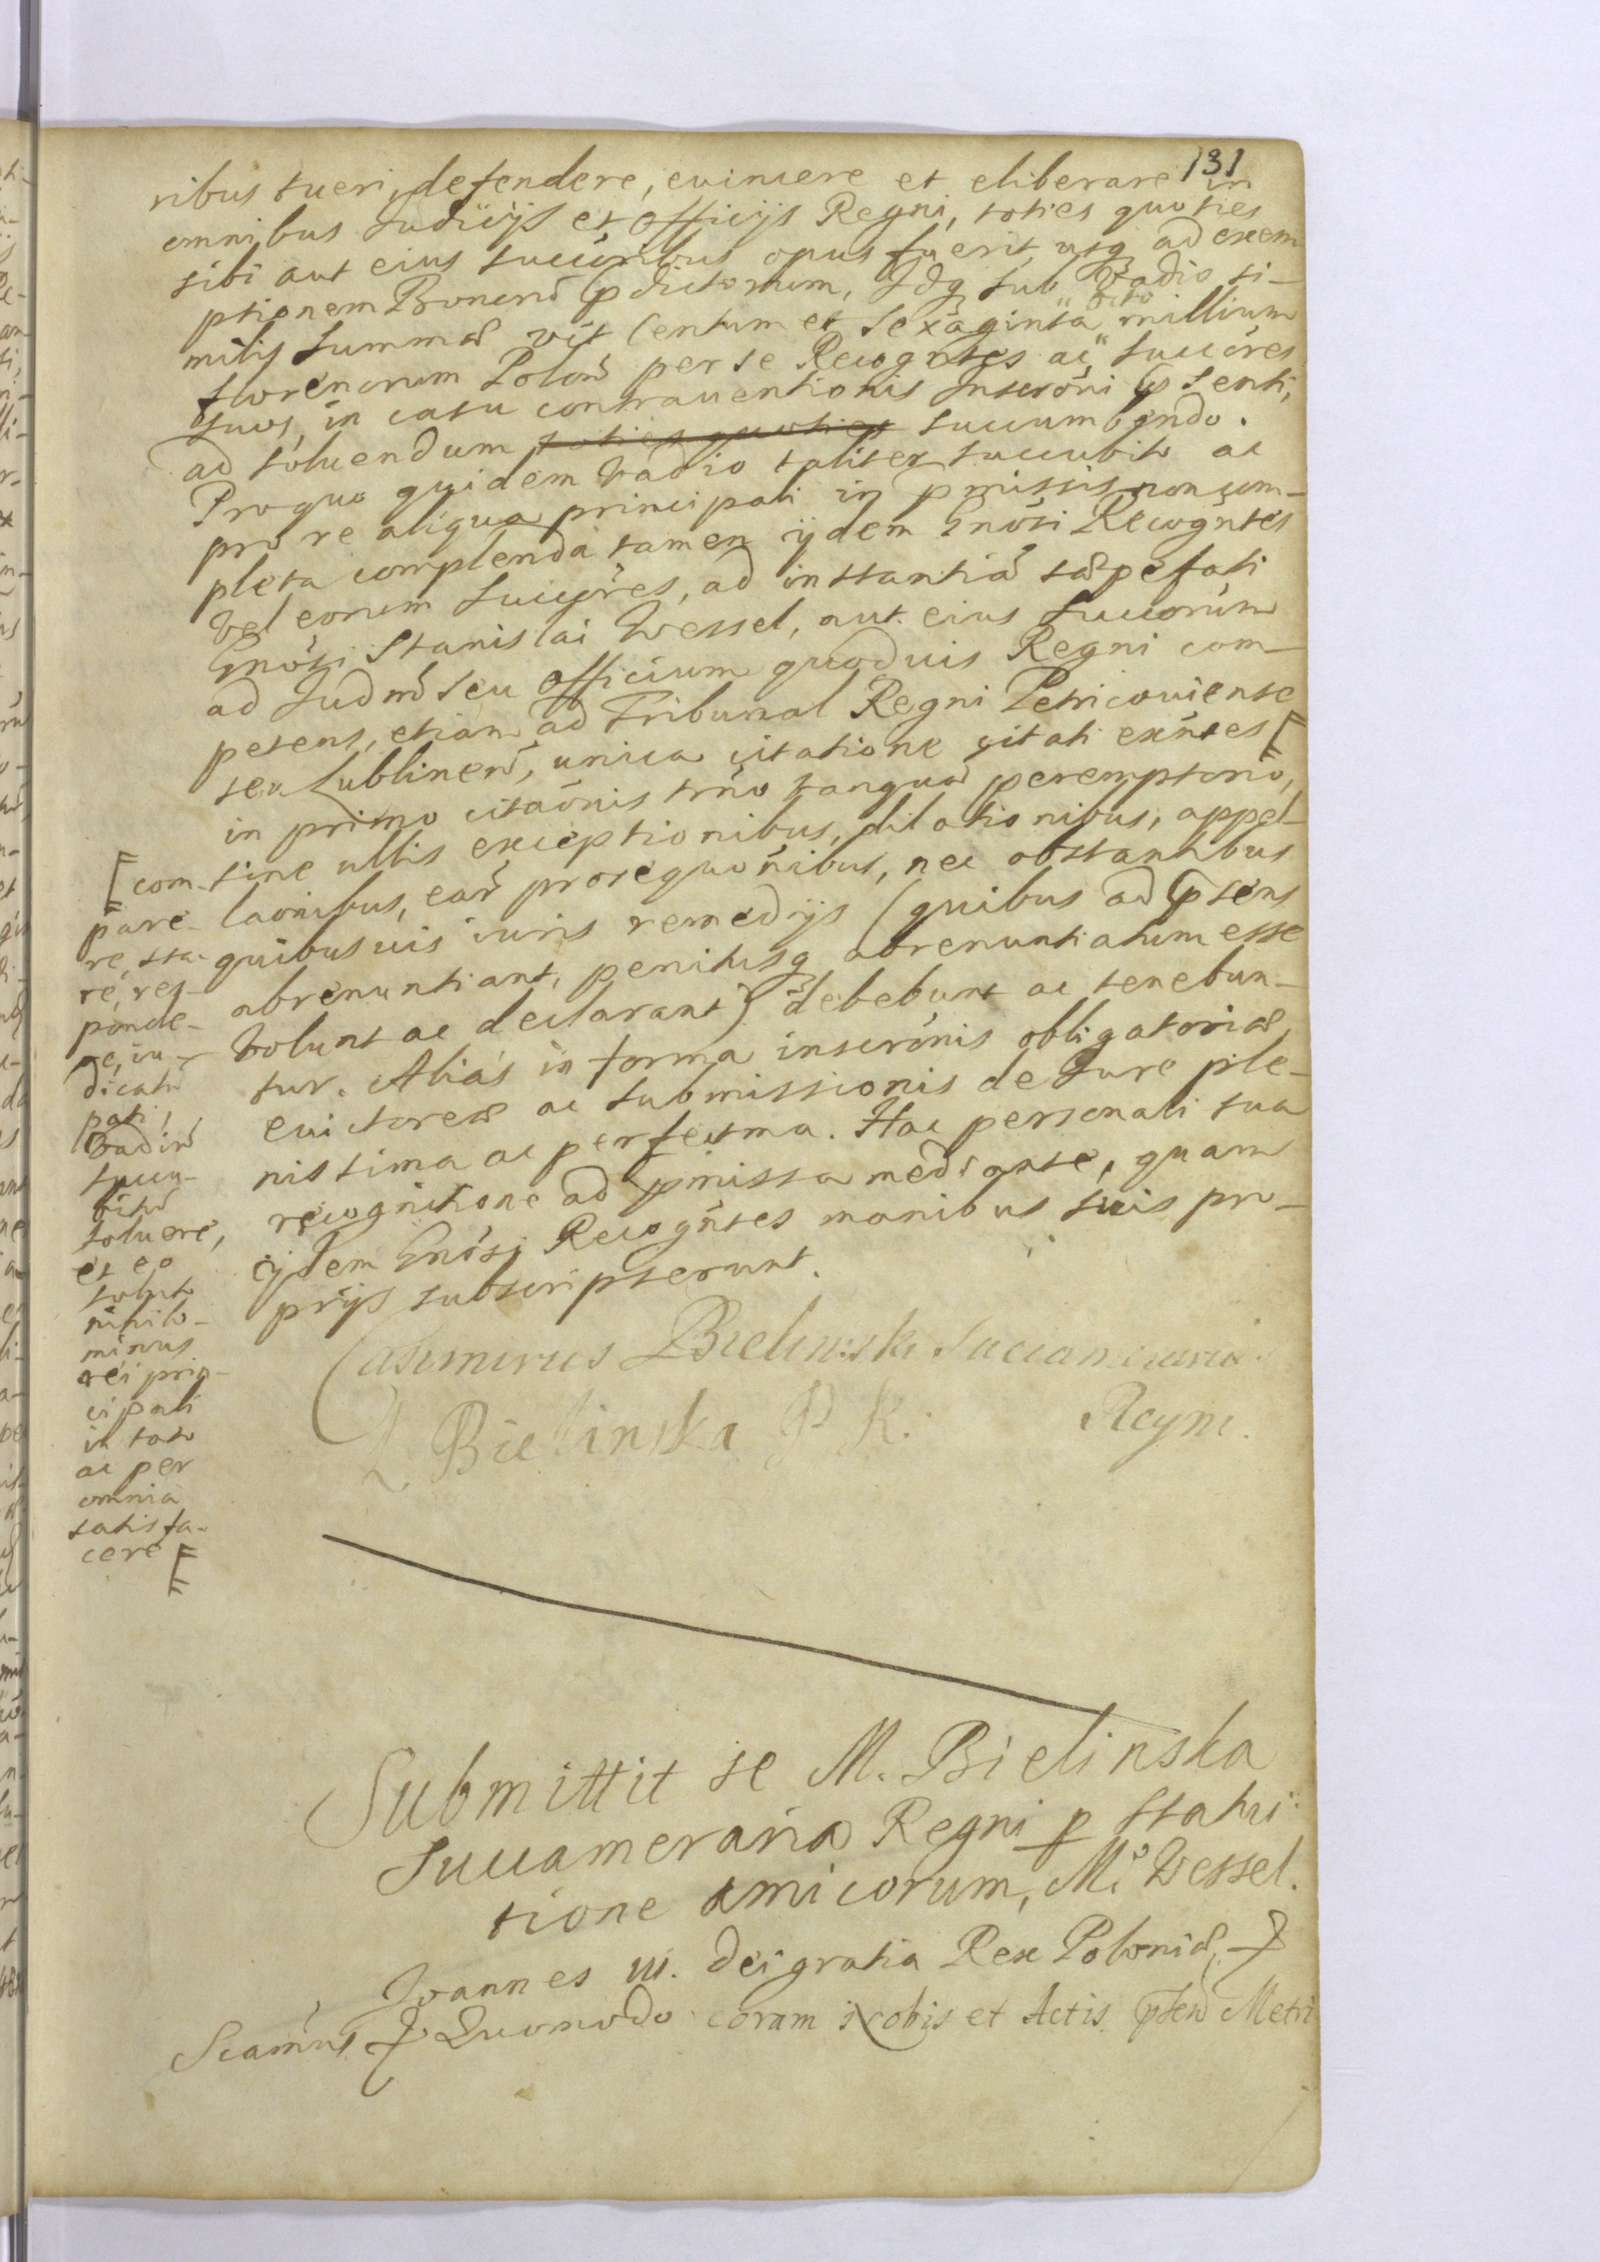 131
ribus tueri, defendere, euincere et eliberare in
omnibus Judicijs et Officijs Regni, toties quoties
sibi aut eius succóribus opus fuerit, usq ad exem
ptionem Bonorũ pdictorum, Idq sub Vadio si-
milis summæ vít Centum et Sexaginta octo millium
florenorum Polon̄ per se Recogntes ac succóres
suos, in casu contrauentionis Inscróni psenti,
ad soluendum toties quoties succumbendo.
Pro quo quidem Vadio taliter succubito ac
pro re aliqua principali in pmissis non com-
pleta complenda tamen ijdem Gnósi Recogńtes
vel eorum succóres, ad instantiã sæpefati
Gnósi Stanislai Wessel, aut eius succorúm
ad Judm̃ seu officium quoduis Regni com-
petens, etiam ad Tribunal Regni Petricouiense
seu Lublinen̄, unica citatione citati exńtes
in primo citaónis trńo tanquã peremptorio,
sine ullis exceptionibus, dilationibus, appel-
laonibus, earũ prosequońibus, nec obstantibus
quibusuis iuris remedijs (quibus ad psens
abrenuntiant, penitusq abrenuntiatum esse
volunt ac declarant) debebunt ac tenebun-
tur. Aliás in forma inscrónis obligatoriæ,
euictoreæ ac submissionis de Jure ple-
nissima ac perfectma. Hac personali sua
recognitione ad pmissa mediante, quam
ijdem Gnósi Recogńtes manibus suis pro-
prijs subscripserunt.
[com-
pare-
re, sta-
re, res-
ponde-
re, iu-
dicatũ
pati,
Vadiũ
succu-
bitũ
soluere,
et eo
soluto
nihilo-
minus
rei prin-
cipali
in toto
ac per
omnia
satisfa-
cere
Casimirus Bielinski Succamerarius
Regni.
L Bielinska P K.
Submittit se M. Bielinska
Succameraria Regni p
tione amicorum, M° Wessel.
Joannes III. Dei gratia Rex Poloniæ,
Quomodo coram Nobis et Actis psen̄ Metri